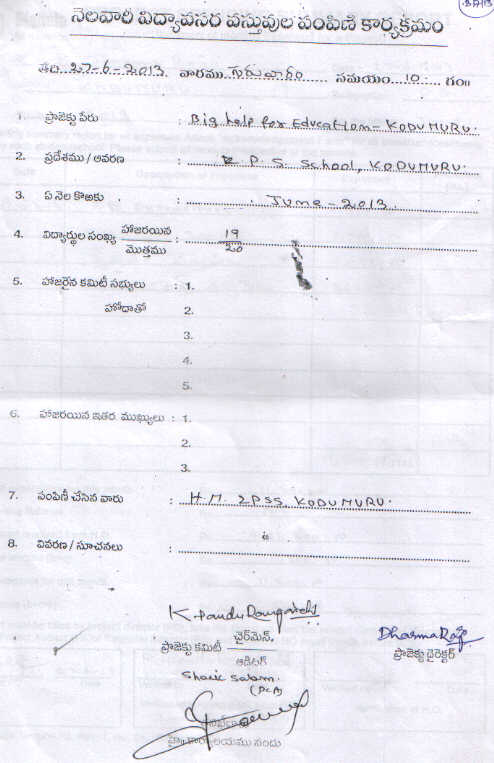 నెలవారీ విద్యావసర వస్తువుల పంపిణి కార్యక్రమం
తేది 27-6-2013 వారము గురువారం సమయం 10: గం॥
1. ప్రాజెక్టు పేరు : Big help for Education - KODUMURU.
2. ప్రదేశము / ఆవరణ : Z P. S. School, KODUMURU.
3. ఏ నెల కొఱకు : June - 2013.
4. విద్యార్థుల సంఖ్య హాజరయిన / మొత్తము : 19 / 20
5. హాజరైన కమిటీ సభ్యులు : 1.
హోదాతో 2.
3.
4.
5.
6. హాజరయిన ఇతర ముఖ్యులు : 1.
2.
3.
7. పంపిణీ చేసిన వారు : H.M. ZPSS, KODUMURU.
8. వివరణ / సూచనలు :
K. Pandu
ప్రాజెక్టు కమిటీ ఛైర్‌మెన్ / ఆడిటర్
Dharma Raju
ప్రాజెక్టు డైరెక్టర్
Shaik Salam.